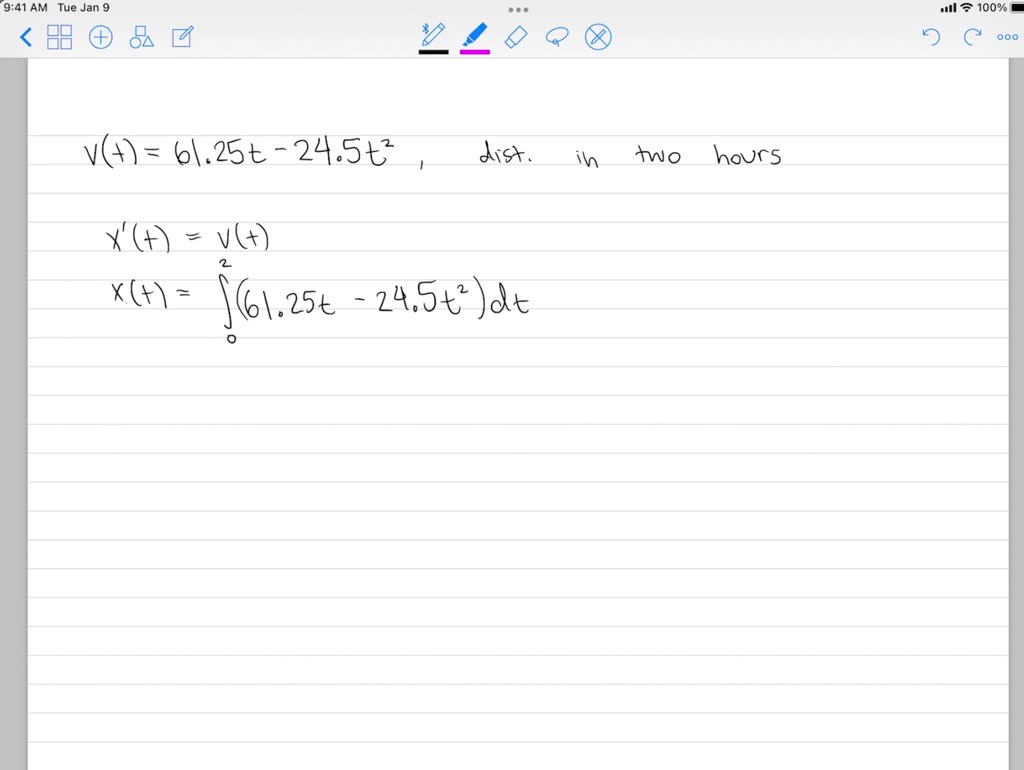 9:41 AM Tue Jan 9 100%
v(t) = 61.25t - 24.5t², dist. in two hours
x'(t) = v(t)
x(t) = ∫₀² (61.25t - 24.5t²) dt